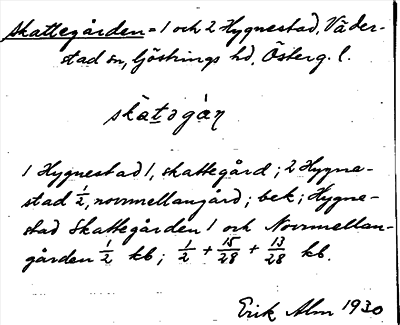 Skattegården = 1 och 2 Hygnestad, Väder-
stad sn, Göstrings hd, Österg. l.
skàt̲ɔgán
1 Hygnestad 1, skattegård; 2 Hygne-
stad ½, norrmellangård; bek; Hygne-
stad Skattegården 1 och Norrmellan-
gården ½ kb; ½ + 15/28 + 13/28 kb.
Erik Alm 1930